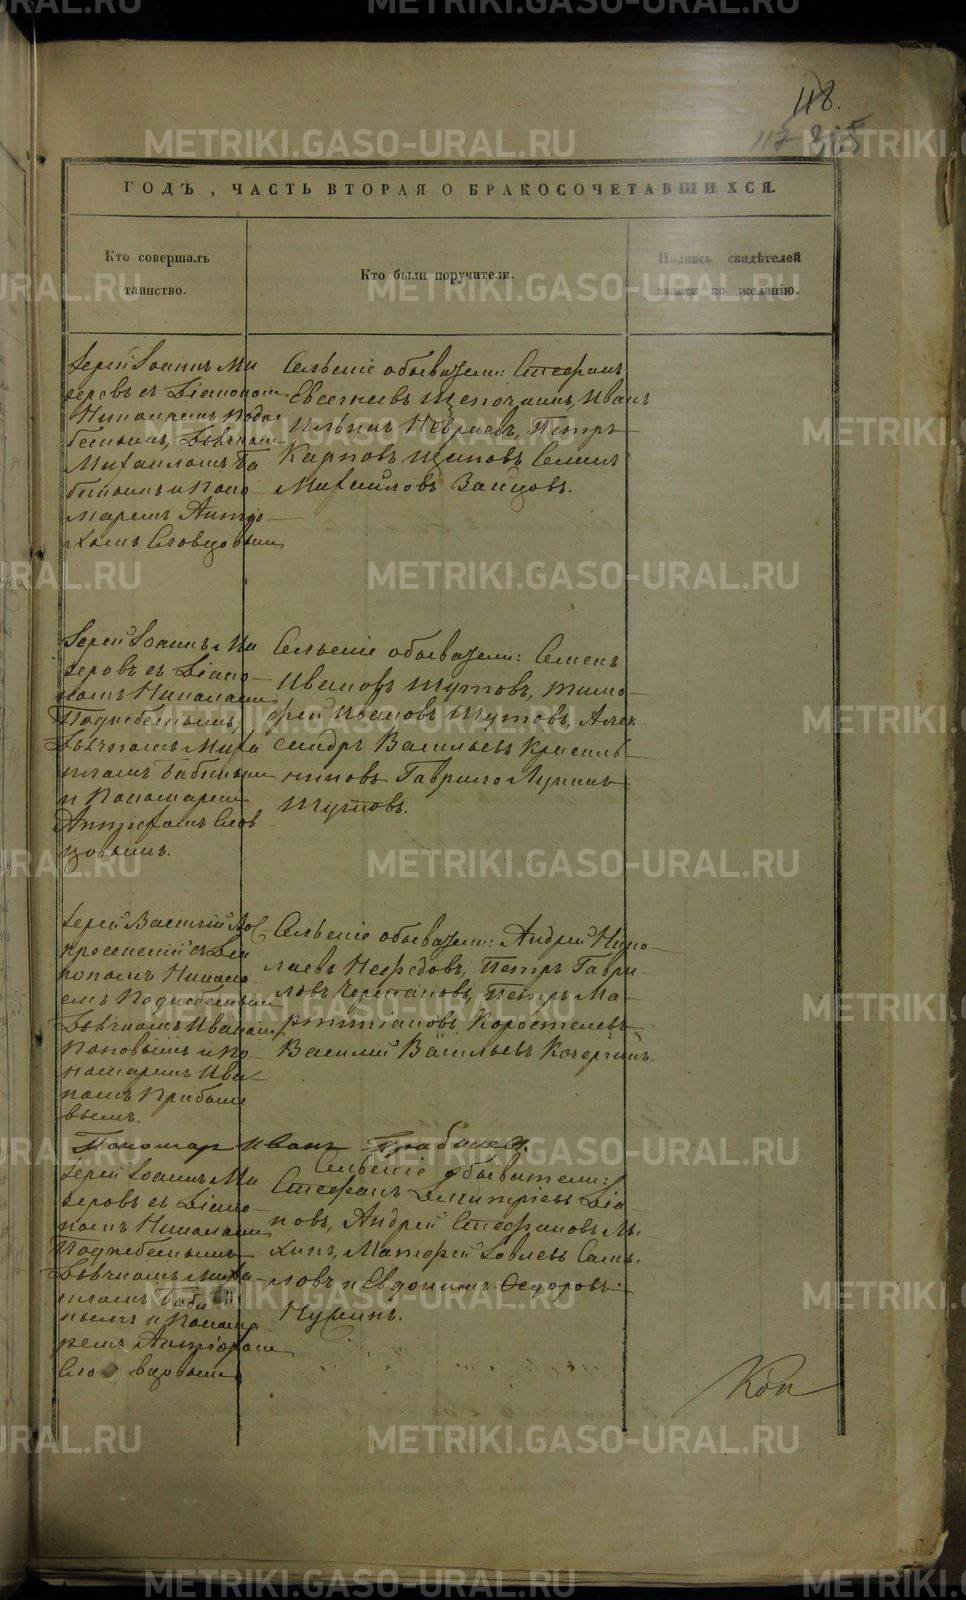 118.
117 315
ГОДЪ, ЧАСТЬ ВТОРАЯ О БРАКОСОЧЕТАВШИХСЯ.
Кто совершалъ
таинство.
Кто были поручители.
Подпись свидѣтелей
записи по желанію.
Іерей Іоаннъ Ми
деровъ съ Діаконом
Николаемъ Подне
бесным,
Михаиломъ Ба
биным и Поно-
маремъ Антіо-
хомъ Словцовым
Сельскіе обыватели: Стефанъ
Евсеніевъ Щепочкинъ, Иванъ
Ильинъ Невраевъ, Петръ
Карповъ Щиповъ Семенъ
Михайловъ Зайцовъ.
Іерей Іоаннъ Ми
деровъ съ Діако-
номъ Николаем
Поднебеснымъ,
Михаи
иломъ Бабиным
и Пономарем
Антіохомъ Слов
цовымъ.
Сельскіе обыватели: Семенъ
Ивановъ Шутовъ, Тимо-
фей Ивановъ Шутовъ, Алек
сандръ Васильевъ Красиль
никовъ Гаврило Лукинъ
Шутовъ.
Іерей Василій Вос
кресенскій съ Діа
кономъ Никола
емъ Поднебесным
Иваном
Поповымъ и по
номаремъ Ива
номъ Грибаше
вымъ.
Сельскіе обыватели: Андрей Нико-
лаевъ Нефедовъ, Петръ Гаври-
ловъ Черепановъ, Петръ Ма-
ртемьяновъ Коростелевъ
Василій Васильевъ Кочергинъ.
Пономар Иванъ Грабашев.
Іерей Іоаннъ Ми
деровъ съ Діако-
номъ Николаем
Поднебеснымъ
Миха-
иломъ Баби
нымъ и Понома
ремъ Антіохом
Словцовым
Сельскіе обыватели:
Стефанъ Дмитріевъ Діа-
ковъ, Андрей Стефановъ Лы-
хинъ, Матфей Іовлевъ Самы-
ловъ и Евдокимъ Федоровъ
Пушинъ.
METRIKI.GASO-URAL.RU